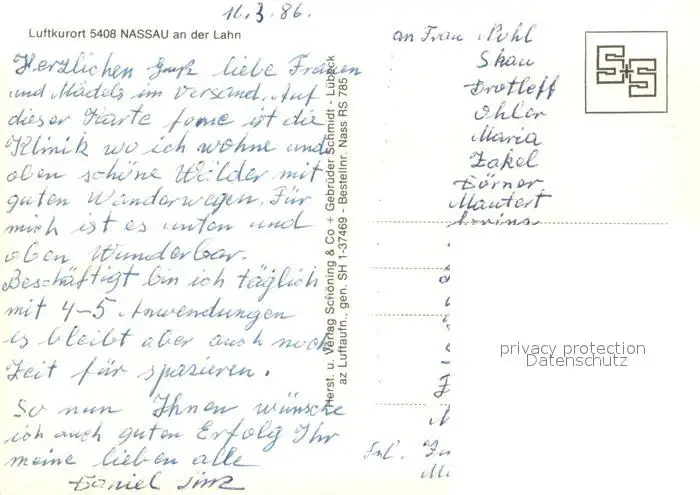 16.3.86.
Luftkurort 5408 NASSAU an der Lahn
Herzlichen Gruß liebe Frauen
und Mädels im Versand. Auf
dieser Karte forne ist die
Klinik wo ich wohne und
oben schöne Wälder mit
guten Wanderwegen. Für
mich ist es unten und
oben Wunderbar.
Beschäftigt bin ich täglich
mit 4-5 Anwendungen
es bleibt aber auch noch
Zeit für spazieren.
So nun Ihnen wünsche
ich auch guten Erfolg Ihr
meine lieben alle
Daniel
Herst. u. Verlag Schöning & Co + Gebrüder Schmidt - Lübeck
az Luftaufn., gen. SH 1-37469 - Bestellnr. Nass RS 785
an Frau Pohl
Skau
Drotleff
Ohler
Maria
Zakel
Dörner
Mautert
S+S
privacy protection
Datenschutz